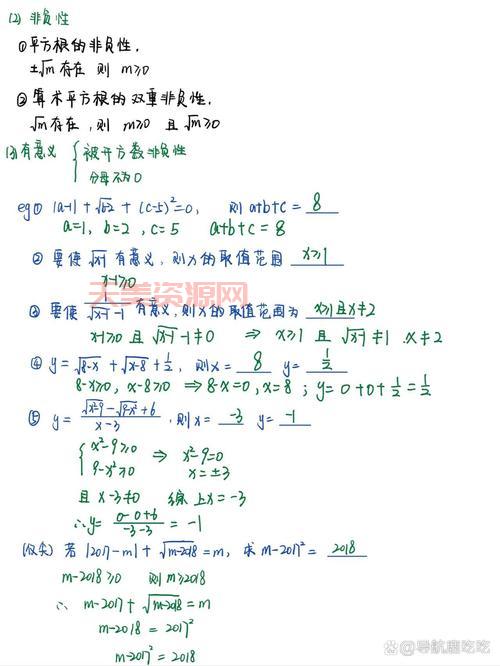 (2) 非负性
①平方根的非负性.
±√m 存在 则 m≥0
② 算术平方根的双重非负性.
√m存在, 则 m≥0 且 √m≥0
(3)有意义 { 被开方数非负性
分母不为0
eg① |a-1| + √b-2 + (c-5)²=0, 则 a+b+c = 8
a=1, b=2, c=5 a+b+c=8
② 要使 √x-1 有意义, 则x的取值范围 x≥1
x-1≥0
③ 要使 1/(√x-1 -1) 有意义, 则x的取值范围为 x≥1且x≠2
x-1≥0 且 √x-1 -1≠0 ⇒ x≥1 且 √x-1 ≠1 x≠2
④ y=√8-x +√x-8 +1/2, 则x= 8 y= 1/2
8-x≥0, x-8≥0 ⇒ 8-x=0, x=8 ; y=0+0+1/2=1/2
⑤ y= (√x²-9 -√9-x² +6)/(x-3) , 则x= -3 y= -1
{ x²-9≥0 ⇒ x²-9=0
9-x²≥0 x=±3
且 x-3≠0 综上x=-3
∴y= (0-0+6)/(-3-3) = -1
若 |2017-m| + √m-2018 =m, 求 m-2017² = 2018
m-2018≥0 则 m≥2018
∴ m-2017+√m-2018 =m
m-2018 = 2017²
m-2017² = 2018
天美资源网
@导航鹿吃吃